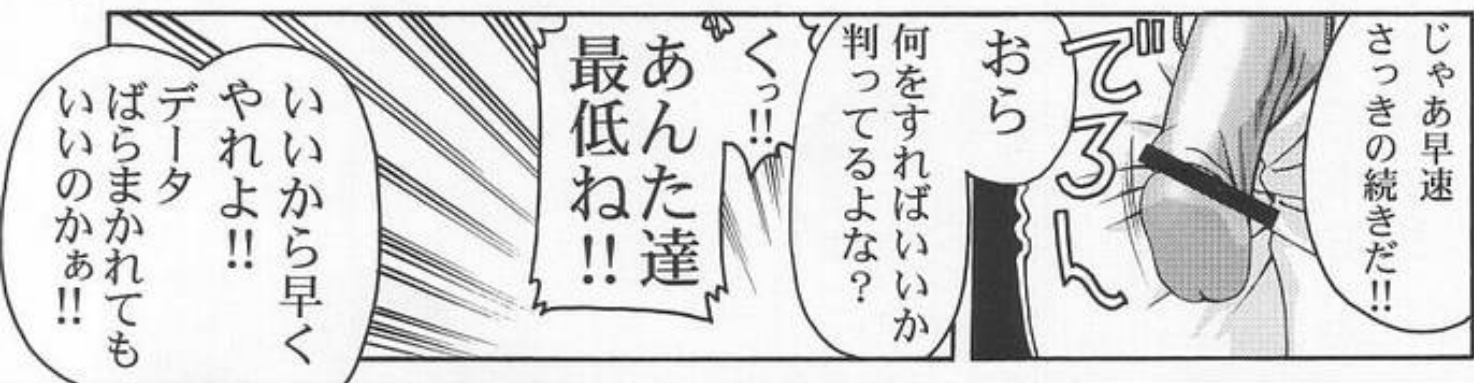 じゃあ早速
さっきの続きだ!!
でろーん
おら
何をすればいいか
判ってるよな?
くっ!!
あんた達
最低ね!!
いいから早く
やれよ!!
データ
ばらまかれても
いいのかぁ!!